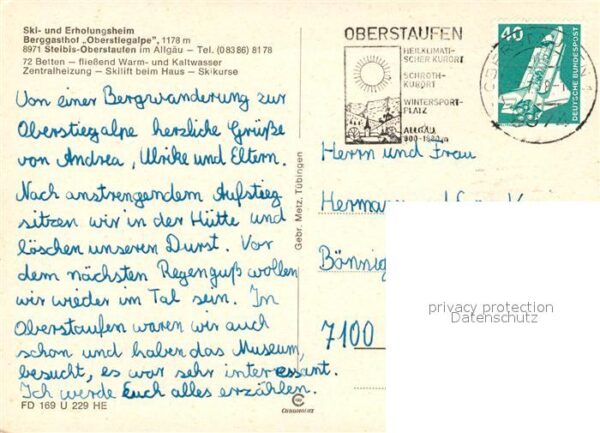 Ski- und Erholungsheim
Berggasthof „Oberstiegalpe", 1178 m
8971 Steibis-Oberstaufen im Allgäu – Tel. (08386) 8178
72 Betten – fließend Warm- und Kaltwasser
Zentralheizung – Skilift beim Haus – Skikurse
Von einer Bergwanderung zur
Oberstiegalpe herzliche Grüße
von Andrea, Ulrike und Eltern.
Nach anstrengendem Aufstieg
sitzen wir in der Hütte und
löschen unseren Durst. Vor
dem nächsten Regenguß wollen
wir wieder im Tal sein. In
Oberstaufen waren wir auch
schon und haben das Museum,
besucht, es war sehr interessant.
Ich werde Euch alles erzählen.
FD 169 U 229 HE
Gebr. Metz, Tübingen
OBERSTAUFEN
HEILKLIMATI-
SCHER KURORT
SCHROTH-
KURORT
WINTERSPORT-
PLATZ
ALLGÄU
40
DEUTSCHE BUNDESPOST
Herrn und Frau
7100
privacy protection
Datenschutz